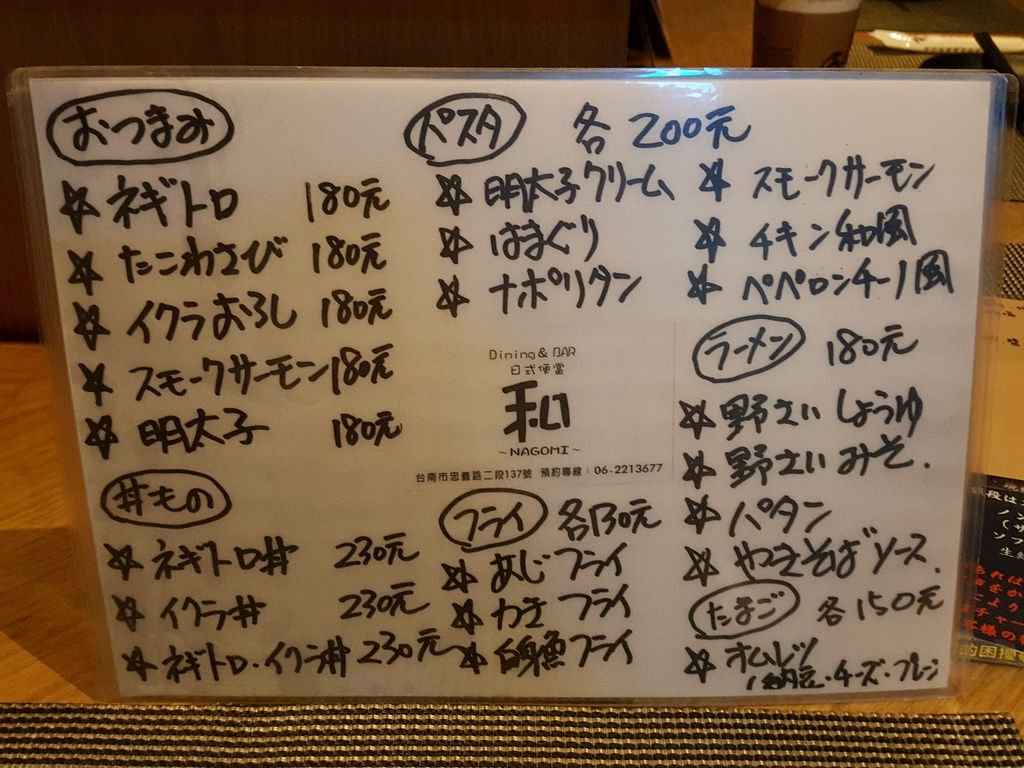 おつまみ
☆ ネギトロ 180元
☆ たこわさび 180元
☆ イクラおろし 180元
☆ スモークサーモン 180元
☆ 明太子 180元
丼もの
☆ ネギトロ丼 230元
☆ イクラ丼 230元
☆ ネギトロ・イクラ丼 230元
パスタ 各200元
☆ 明太子クリーム
☆ はまぐり
☆ ナポリタン
☆ スモークサーモン
☆ チキン和風
☆ ペペロンチーノ風
Dining & BAR
日式便當
和
~NAGOMI~
台南市忠義路二段137號 預約專線：06-2213677
フライ 各130元
☆ あじフライ
☆ カキフライ
☆ 白身魚フライ
ラーメン 180元
☆ 野さいしょうゆ
☆ 野さいみそ.
☆ パタン
☆ やきそばソース.
たまご 各150元
☆ オムレツ
納豆・チーズ・プレーン
段は
ノン
ソフ
生